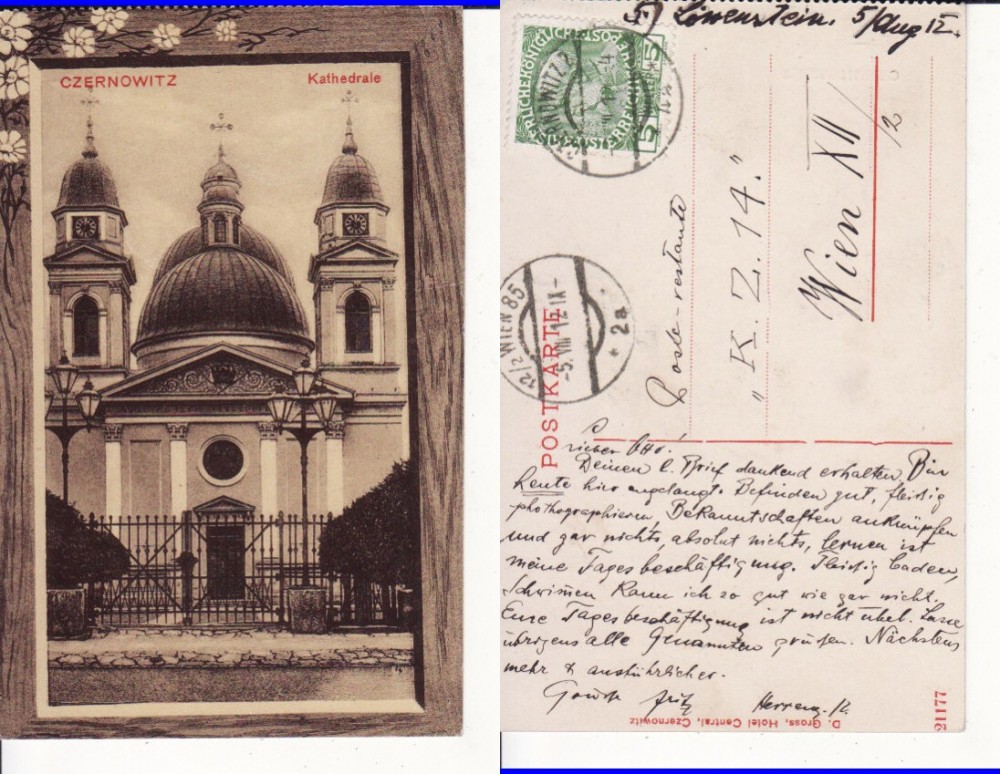 CZERNOWITZ
Kathedrale
5) Löwenstein. 5/Aug 12.
5 5
CZERNOWITZ 2
12/2 WIEN 85
-5. VIII. 12. IX-
* 2a *
POSTKARTE
Poste-restante
"K. Z. 14."
Wien XII/2
Lieber Otto!
Deinen l. Brief dankend erhalten. Bin
heute hier angelangt. Befinden gut, fleißig
phothographieren Bekanntschaften anknüpfen
und gar nichts, absolut nichts, lernen ist
meine Tagesbeschäftigung. Fleißig baden,
Schwimen kann ich so gut wie gar nicht.
Eure Tagesbeschäftigung ist nicht übel. Lasse
übrigens alle Genannten grüßen. Nächstens
mehr & ausführlicher.
Fritz
Herreng.
D. Gross, Hotel Central, Czernowitz
21177